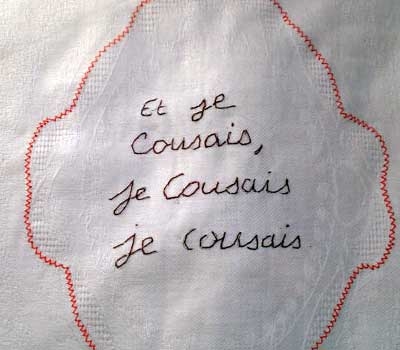 Et je
Cousais,
je Cousais
je cousais.